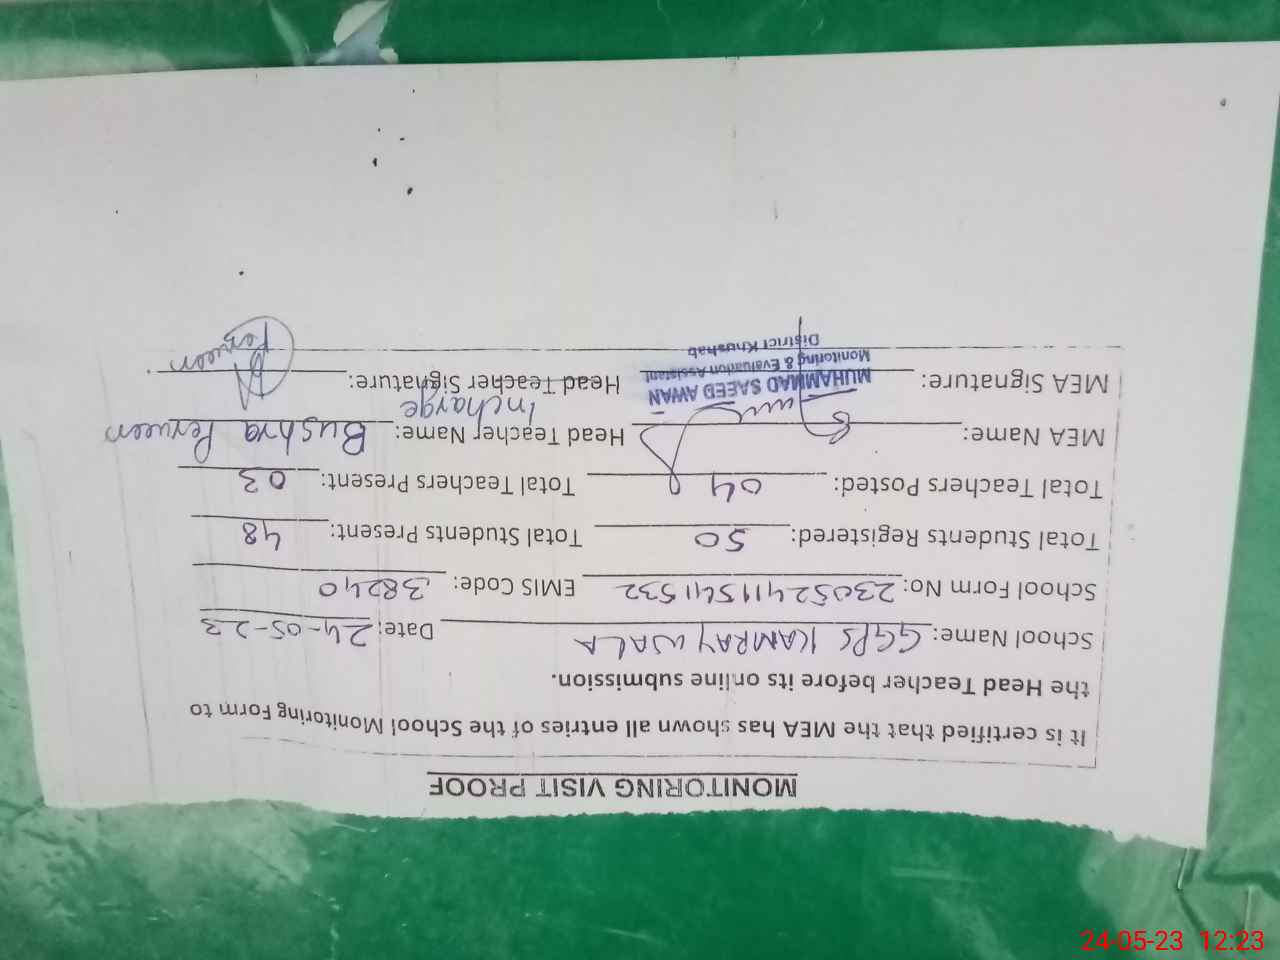 MONITORING VISIT PROOF
It is certified that the MEA has shown all entries of the School Monitoring Form to
the Head Teacher before its online submission.
School Name: GGPS KAMRAY WALA Date: 24-05-23
School Form No: 23052411541532 EMIS Code: 38240
Total Students Registered: 50 Total Students Present: 48
Total Teachers Posted: 04 Total Teachers Present: 03
MEA Name: Head Teacher Name: Bushra Perveen
Incharge
MEA Signature: Head Teacher Signature: Perveen
MUHAMMAD SAEED AWAN
Monitoring & Evaluation Assistant
District Khushab
24-05-23 12:23